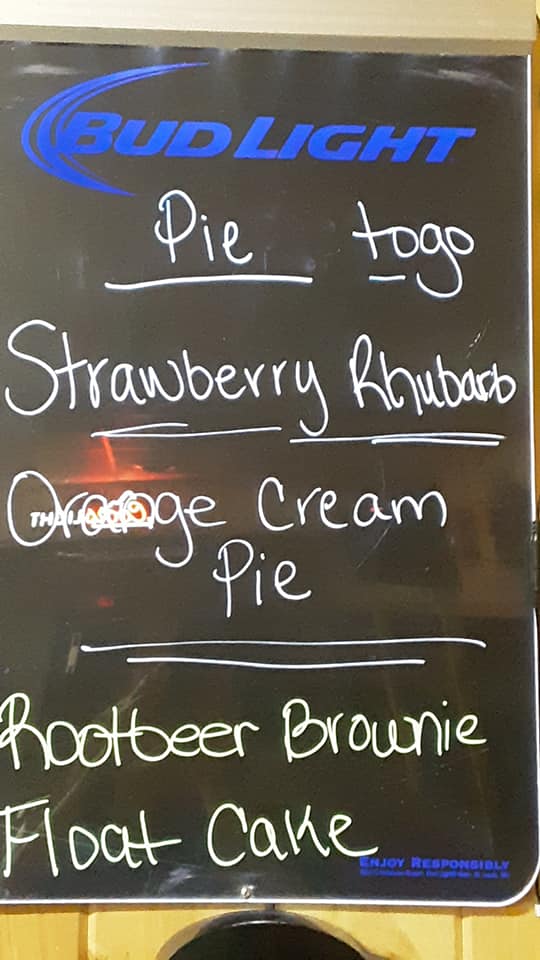 BUD LIGHT
Pie togo
Strawberry Rhubarb
Orange Cream
Pie
Rootbeer Brownie
Float Cake
ENJOY RESPONSIBLY